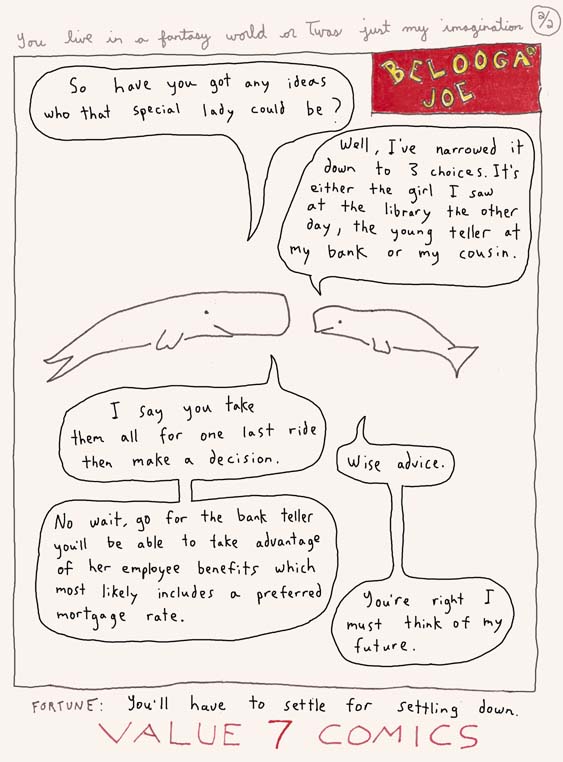 You live in a fantasy world or Twas just my imagination
2/2
BELOOGA
JOE
So have you got any ideas
who that special lady could be?
Well, I've narrowed it
down to 3 choices. It's
either the girl I saw
at the library the other
day, the young teller at
my bank or my cousin.
I say you take
them all for one last ride
then make a decision.
Wise advice.
No wait, go for the bank teller
you'll be able to take advantage
of her employee benefits which
most likely includes a preferred
mortgage rate.
You're right I
must think of my
future.
FORTUNE: You'll have to settle for settling down.
VALUE 7 COMICS